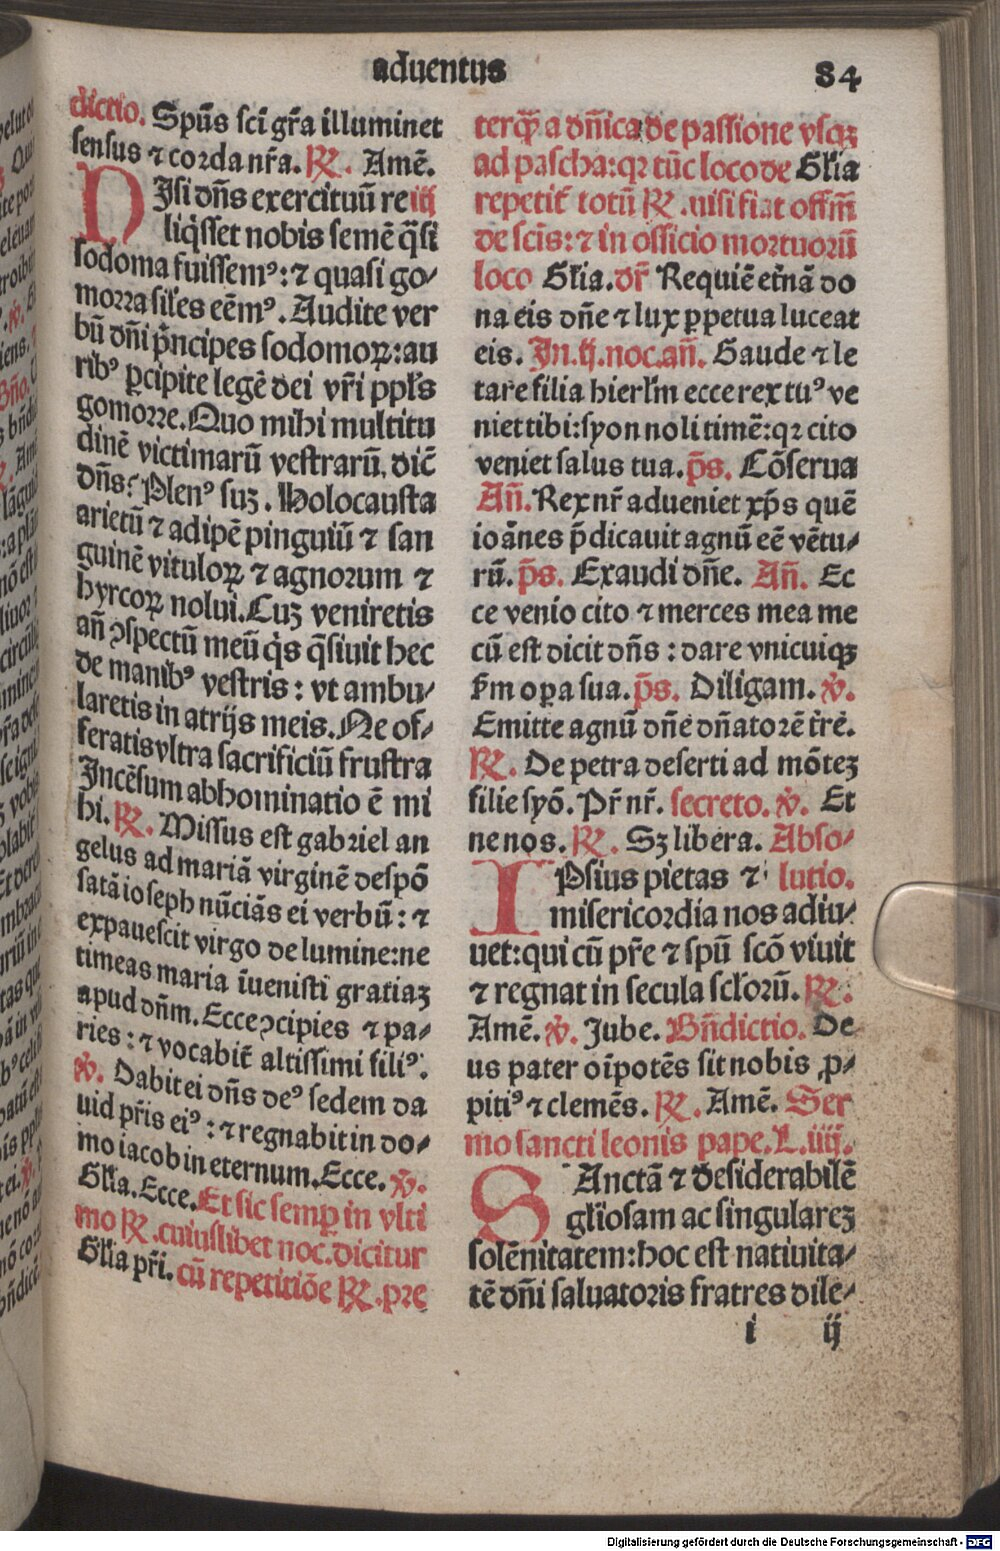 aduentus
84
dictio. Spūs sci gr̄a illuminet
sensus ⁊ corda nr̄a. ℟. Amē.
NIsi dn̄s exercituū re iij
liq̇sset nobis semē q̄si
sodoma fuissemꝰ: ⁊ quasi go⸗
morra sil̄es eēmꝰ. Audite ver
bū dn̄i pṅcipes sodomoꝝ: au
ribꝰ ꝑcipite legē dei vr̄i ppl̄s
gomorre. Quo mihi multitu
dinē victimarū vestrarū. dic̄
dn̄s? Plenꝰ suꝫ. Holocausta
arietū ⁊ adipē pinguiū ⁊ san
guinē vituloꝝ ⁊ agnorum ⁊
hyrcoꝝ nolui. Cuꝫ veniretis
an̄ ꝯspectū meū q̇s q̄siuit hec
de manibꝰ vestris: vt ambu⸗
laretis in atrijs meis. Ne of⸗
feratis vltra sacrificiū frustra
Incēsum abhominatio ē mi
hi. ℟. Missus est gabriel an
gelus ad mariā virginē despō
satā ioseph nūciās ei verbū: ⁊
expauescit virgo de lumine: ne
timeas maria īuenisti gratiaꝫ
apud dn̄m. Ecce ꝯcipies ⁊ pa⸗
ries: ⁊ vocabit̄ altissimi filiꝰ.
℣. Dabit ei dn̄s deꝰ sedem da
uid pr̄is eiꝰ: ⁊ regnabit in do⸗
mo iacob in eternum. Ecce. ℣.
Gl̄ia. Ecce. Et sic semꝑ in vlti
mo ℟. cuiuslibet noc. dicitur
Gl̄ia pr̄i. cū repetitiōe ℟. pre
terqꝫ a dn̄ica de passione vsqꝫ
ad pascha: qꝛ tūc loco de Gl̄ia
repetit̄ totū ℟. nisi fiat offm̄
de scīs: ⁊ in officio mortuorū
loco Gl̄ia. dr̄ Requiē et̄nā do
na eis dn̄e ⁊ lux ꝑpetua luceat
eis. In. ij. noc. an̄. Gaude ⁊ le
tare filia hierl̄m ecce rex tuꝰ ve
niet tibi: syon noli timē: qꝛ cito
veniet salus tua. ps̄. Cōserua
An̄. Rex nr̄ adueniet xp̄s quē
ioānes p̄dicauit agnū eē vētu⸗
rū. ps̄. Exaudi dn̄e. An̄. Ec
ce venio cito ⁊ merces mea me
cū est dicit dn̄s: dare vnicuiqꝫ
ẜm oꝑa sua. ps̄. Diligam. ℣.
Emitte agnū dn̄e dn̄atorē t̄re.
℟. De petra deserti ad mōteꝫ
filie syō. Pr̄ nr̄. secreto. ℣. Et
ne nos. ℟. Sꝫ libera. Abso⸗
IPsius pietas ⁊ lutio.
misericordia nos adiu⸗
uet: qui cū pr̄e ⁊ spū scō viuit
⁊ regnat in secula scl̄orū. ℟.
Amē. ℣. Jube. Bn̄dictio. De
us pater oīpotēs sit nobis ꝓ⸗
pitiꝰ ⁊ clemēs. ℟. Amē. Ser
mo sancti leonis pape. L. iiij.
SAnctā ⁊ desiderabilē
gl̄iosam ac singulareꝫ
solēnitatem: hoc est natiuita⸗
tē dn̄i saluatoris fratres dile⸗
i ij
Digitalisierung gefördert durch die Deutsche Forschungsgemeinschaft - DFG